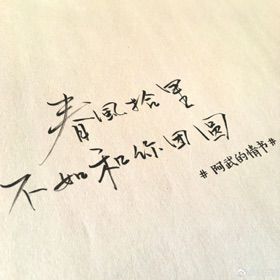 春风拾里
不如和你团圆
#阿武的情书#